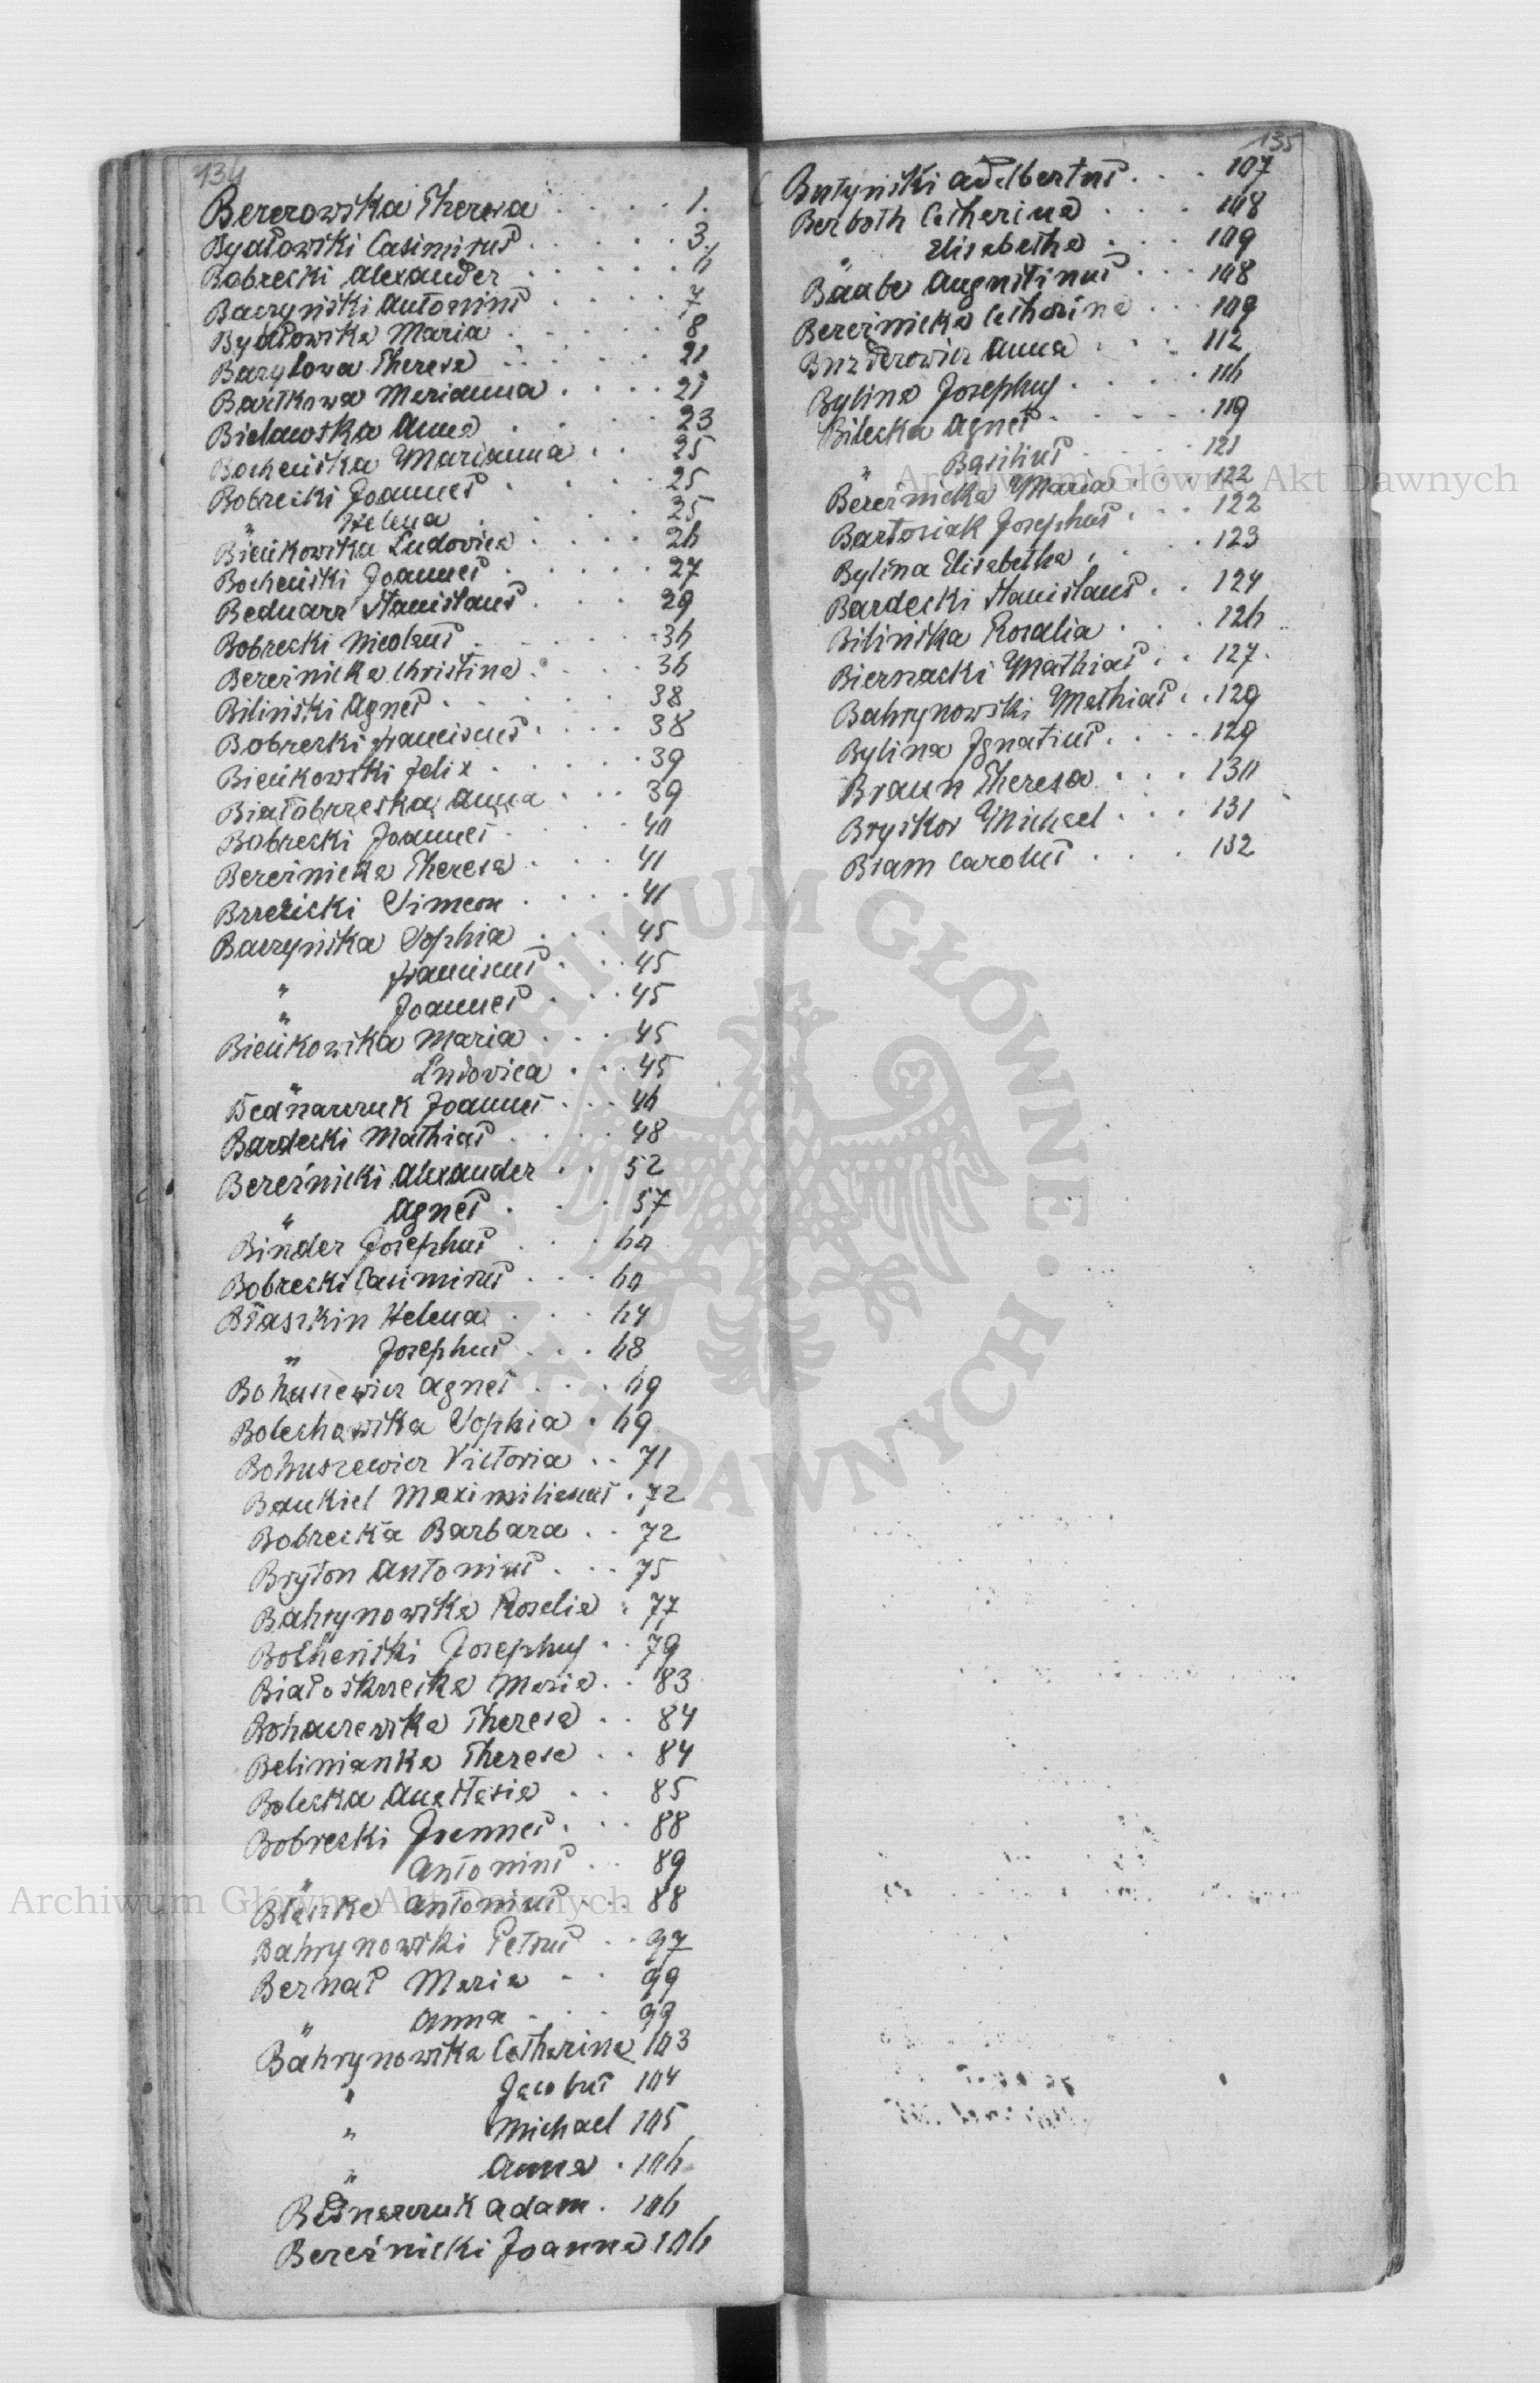 134
Bererowska Theresa . . . . 1.
Bydłowski Casimirus . . . . . 3.
Bobrecki Alexander . . . . . 6
Baczyński Antonius . . . . . 7
Bydłowska Maria . . . . . 8
Baryłowa Theresa . . . . . 21
Bartkowa Marianna . . . . 21
Bielawska Anna . . . . 23
Bocheńska Marianna . . 25
Bobrecki Joannes . . . . 25
" Helena . . . . 25
Bieńkowska Ludovica . . . . 26
Bocheński Joannes . . . . . 27
Bednarz Stanislaus . . . . 29
Bobrecki Nicolaus . . . . . 36
Bereźnicka Christina . . . . 36
Biliński Agnes . . . . . 38
Bobrecki Franciscus . . . . 38
Bieńkowski Felix . . . . . 39
Białobrzeska Anna . . . 39
Bobrecki Joannes . . . . 40
Bereźnicka Theresa . . . 41
Brzeżicki Simeon . . . . 41
Baczyńska Sophia . . . 45
" Franciscus . . . 45
" Joannes . . . 45
Bieńkowska Maria . . . 45
" Ludovica . . . 45
Bednarczuk Joannes . . . 46
Bardecki Mathias . . . . 48
Bereźnicki Alexander . . 52
" Agnes . . . 57
Binder Josephus . . . 60
Bobrecki Casimirus . . . 60
Błaszkin Helena . . . 64
" Josephus . . . 68
Bohuszewicz Agnes . . . 69
Bolechowska Sophia . 69
Bohuszewicz Victoria . . 71
Baukiel Maximilianus . 72
Bobrecka Barbara . . 72
Bryton Antonius . . . 75
Bahrynowska Rosalia . 77
Bocheński Josephus . . 79
Białoskurska Maria . . 83
Bohaczewska Theresa . . 84
Belinianka Theresa . . 84
Bolecka Anastasia . . 85
Bobrecki Joannes . . . 88
" Antonius . . 89
Antonius . . 88
Bahrynowski Petrus . . 97
Bernat Maria . . 99
" Anna . . . 99
Bahrynowska Catharina 103
" Jacobus 104
" Michael 105
" Anna . 106
Bednarczuk Adam . 106
Bereźnicki Joanna 106
135
Butyński Adelbertus . . . 107
Berboth Catharina . . . 108
" Elisabetha . . . 109
Baabe Augustinus . . . 108
Bereźnicka Catharina . . . 109
Buzderowicz Anna . . . 112
Bylina Josephus . . . . 116
Bilecka Agnes . . . . . 119
" Basilius . . . . 121
Bereźnicka Maria . . . 122
Bartosiak Josephus . . . 122
Bylina Elisabetha . . . 123
Bardecki Stanislaus . . 124
Bilińska Rosalia . . . 126
Biernacki Mathias . . 127.
Bahrynowski Mathias . . 129
Bylina Ignatius . . . . 129
Braun Theresa . . . 130
Bryskos Michael . . . 131
Bram Carolus . . . . 132
Archiwum Główne Akt Dawnych
Archiwum Główne Akt Dawnych
ARCHIWUM GŁÓWNE AKT DAWNYCH